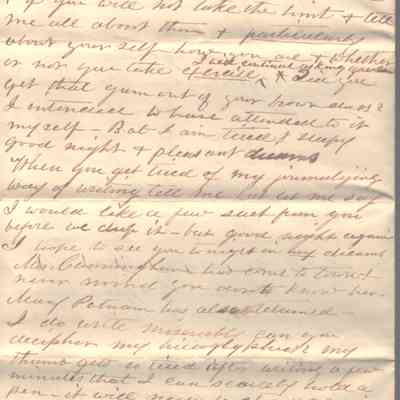 if you will not take the hint & tell
me all about them & particularly
about your self how you are & whether
or not you take exercise & Did you
I and continual asking questions
get that gum out of your brown dress?
I intended to have attended to it
myself - But I am tired & sleepy
good night & pleasant dreams
When you get tired of my
way of writing tell me but let me say
I would like a few such from you
before we drop it - but good night again
I hope to see you tonight in my dreams
Mrs. Cunningham has come to town
never mind you don't know her
Mary Putnam has also returned -
I do write miserably can you
decipher my hieroglyphics? my
thumb gets so tired after writing a few
minutes that I can scarcely hold a
pen - it will